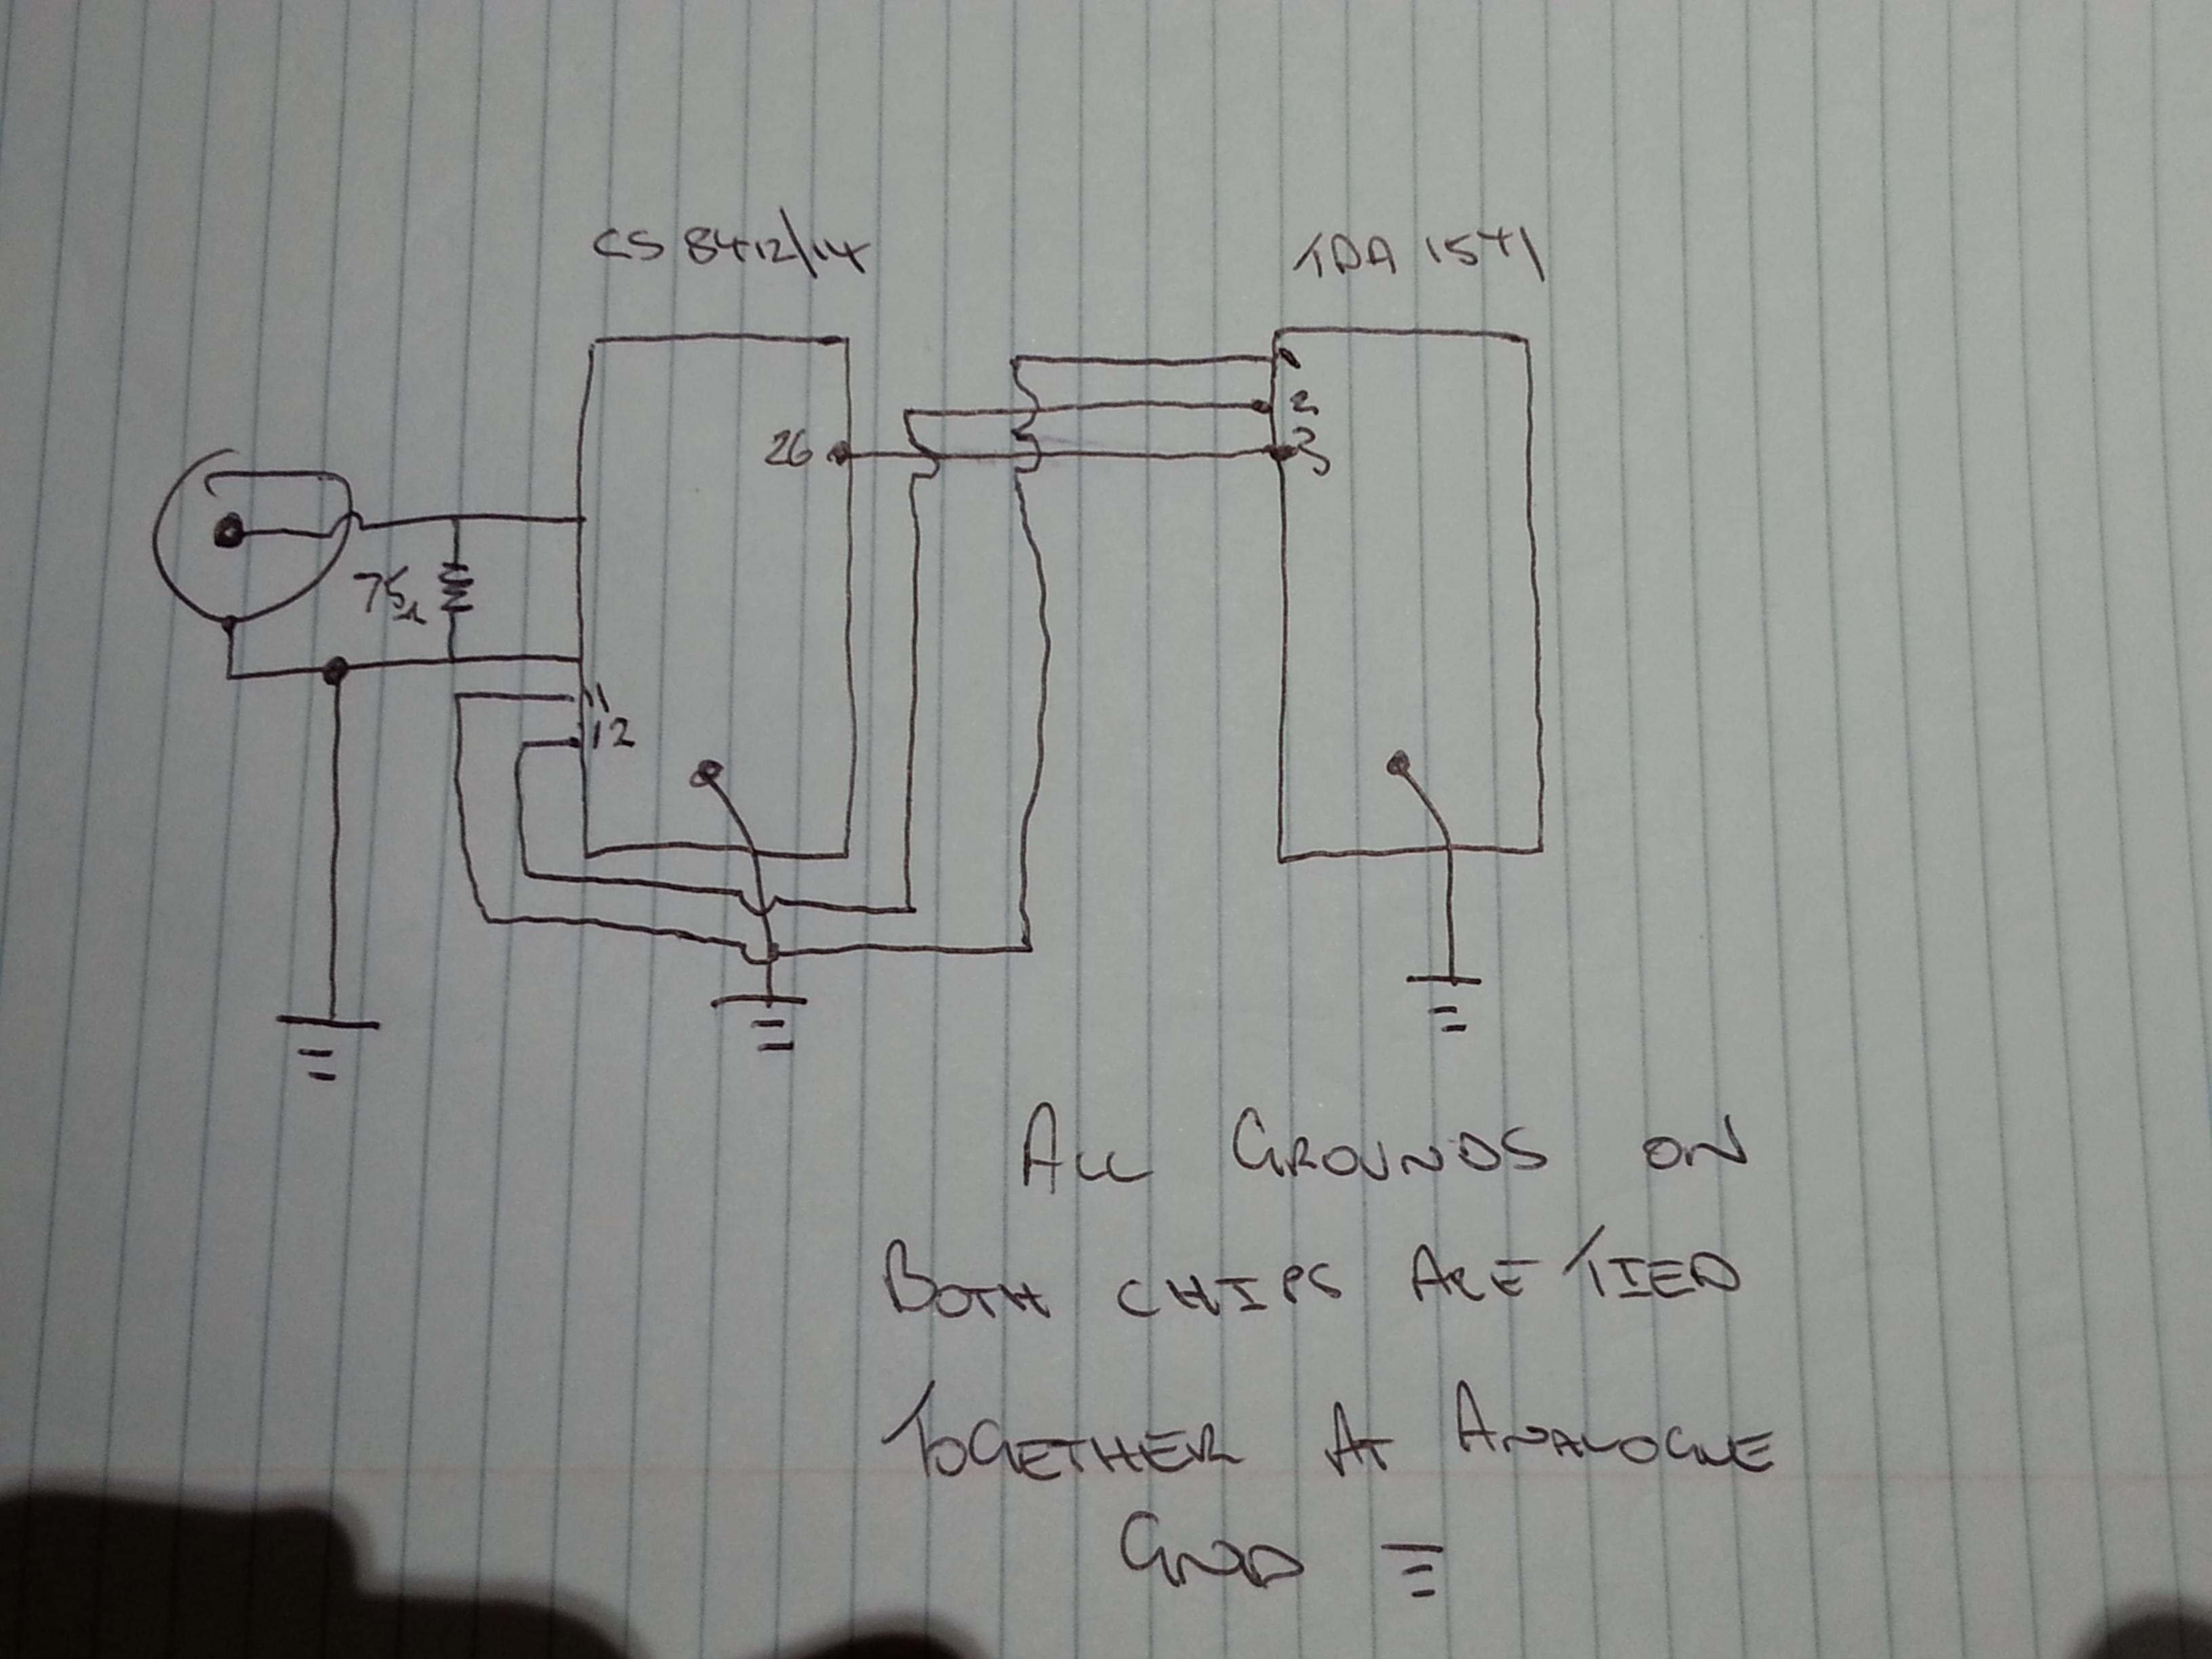 CS 8412/14
TDA 1541
2
26
3
75Ω
11
12
ALL GROUNDS ON
BOTH CHIPS ARE TIED
TOGETHER AT ANALOGUE
GND